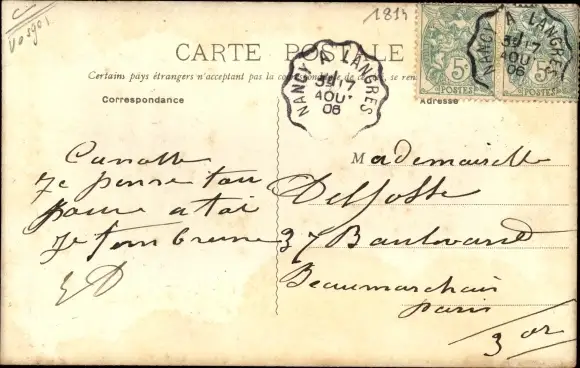 Vosges
1814
CARTE POSTALE
Certains pays étrangers n'acceptent pas la correspondance de ce côté, se ren
Correspondance
Adresse
NANCY A LANGRES
17
AOUT
06
NANCY A LANGRES
17
AOU
06
5c 5c
POSTES POSTES
Je pense tou
a toi
Je tembrasse
ED
Mademoiselle
Delfosse
37 Boulevard
Beaumarchais
Paris
3